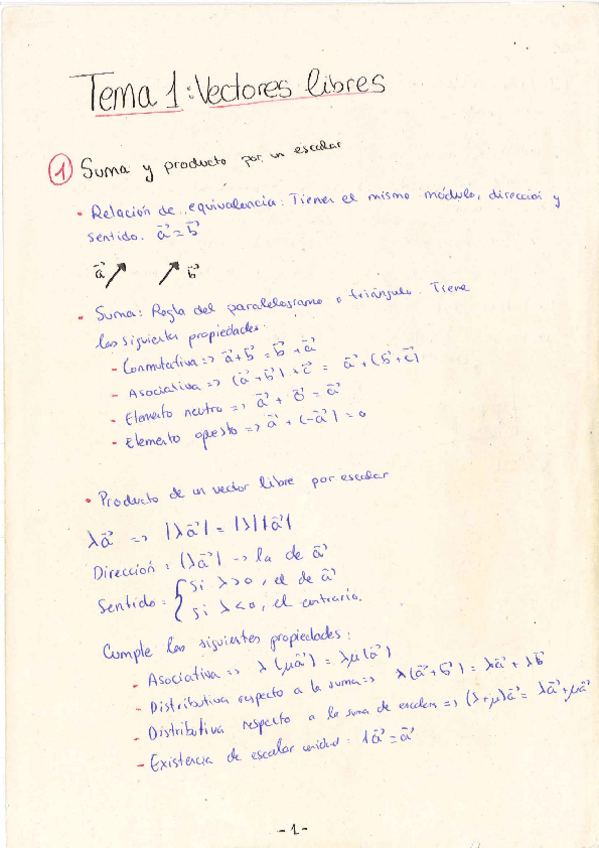 Tema 1: Vectores libres
① Suma y producto por un escalar
• Relación de equivalencia: Tienen el mismo módulo, dirección y
sentido. a⃗ = b⃗
a⃗ b⃗
• Suma: Regla del paralelogramo o triángulo. Tiene
las siguientes propiedades:
- Conmutativa => a⃗ + b⃗ = b⃗ + a⃗
- Asociativa => (a⃗ + b⃗) + c⃗ = a⃗ + (b⃗ + c⃗)
- Elemento neutro => a⃗ + 0⃗ = a⃗
- Elemento opuesto => a⃗ + (-a⃗) = 0
• Producto de un vector libre por escalar
λa⃗ => |λa⃗| = |λ||a⃗|
Dirección: (λa⃗) -> la de a⃗
Sentido: { si λ>0, el de a⃗
si λ<0, el contrario.
Cumple las siguientes propiedades:
- Asociativa => λ(μa⃗) = λμ(a⃗)
- Distributiva respecto a la suma => λ(a⃗ + b⃗) = λa⃗ + λb⃗
- Distributiva respecto a la suma de escalares => (λ+μ)a⃗ = λa⃗ + μa⃗
- Existencia de escalar unidad: 1a⃗ = a⃗
- 1 -